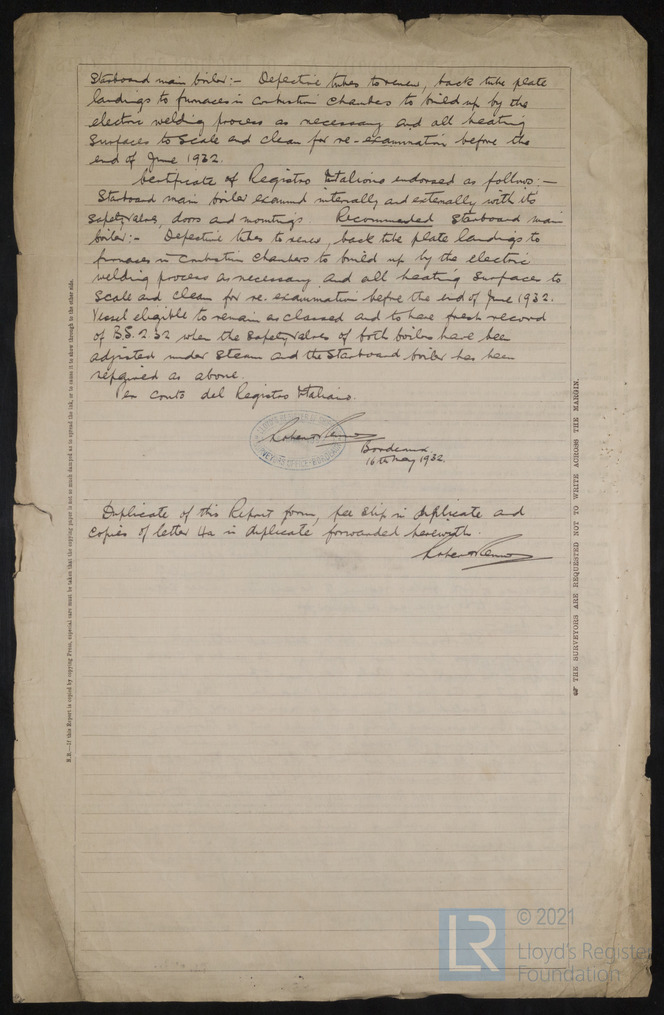 Starboard main boiler:- Defective tubes to renew, back tube plate
landings to furnaces in combustion chambers to build up by the
electric welding process as necessary and all heating
surfaces to scale and clean for re-examination before the
end of June 1932.
Certificate of Registro Italiano endorsed as follows:-
Starboard main boiler examined internally and externally with its
safety valves, doors and mountings. Recommended Starboard main
boiler:- Defective tubes to renew, back tube plate landings to
furnaces in combustion chambers to build up by the electric
welding process as necessary and all heating surfaces to
scale and clean for re-examination before the end of June 1932.
Vessel eligible to remain as classed and to have fresh record
of B.S. 2.32 when the safety valves of both boilers have been
adjusted under steam and the Starboard boiler has been
repaired as above.
Per conto del Registro Italiano.
Bordeaux
16th May 1932.
Duplicate of this Report form, fee slip in duplicate and
copies of letter 4a in duplicate forwarded herewith.
N.B.—If this Report is copied by copying Press, especial care must be taken that the copying paper is not so much damped as to spread the ink, or to cause it to show through to the other side.
THE SURVEYORS ARE REQUESTED NOT TO WRITE ACROSS THE MARGIN.
LR © 2021
Lloyd's Register
Foundation